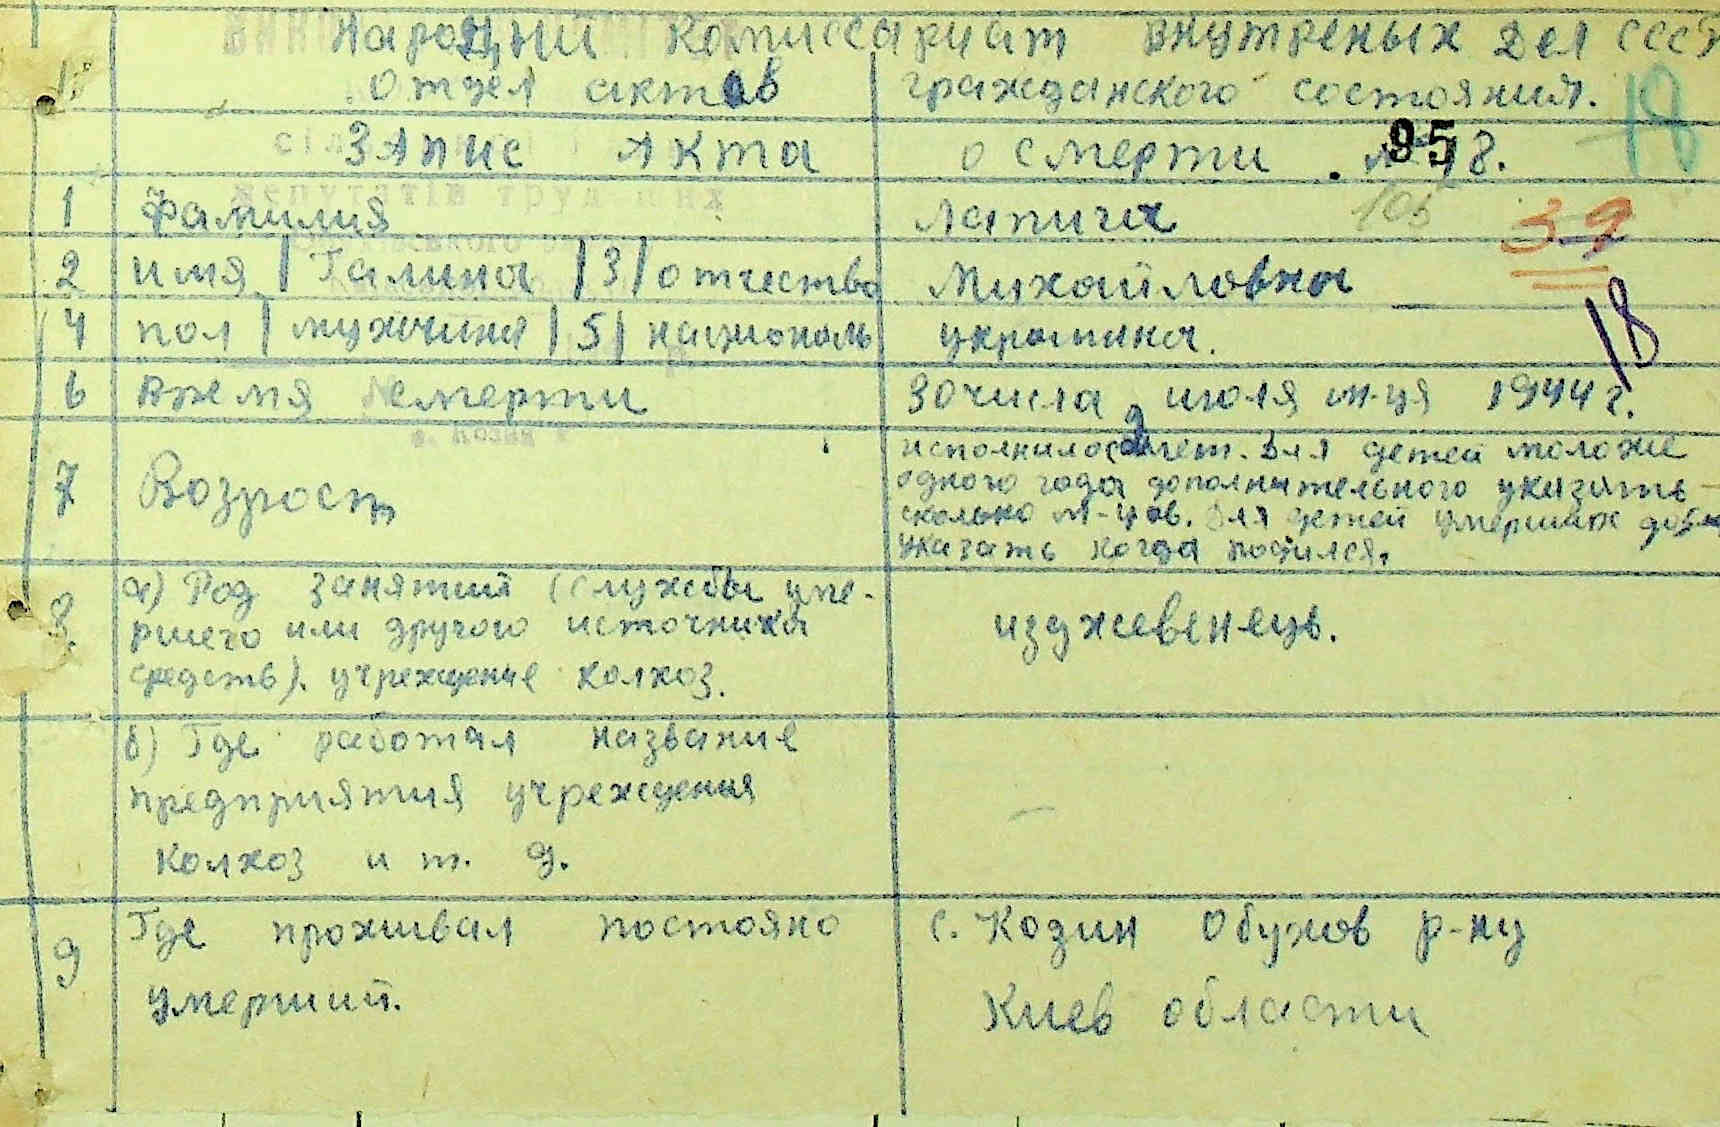 Народний комиссариат внутреных дел СССР
Отдел актов гражданского состояния.
18
Запис Акта о смерти № 18.
95
1 Фамилия Лапига
105
39
2 имя | Галина | 3 | отчество Михайловна
4 пол | мужчина | 5 | националь украинка.
18
6 время смерти 30 числа июля м-ця 1944 г.
7 Возраст
исполнилос 2 лет. Для детей моложе
одного года дополнительного указать
сколько м-цов. Для детей умерших
указать когда родился.
8. а) Род занятий (службы уме-
ршего или другого источника
средств). учреждение колхоз.
изджевенець.
б) Где работал название
предприятия учреждения
колхоз и т. д.
9 Где проживал постояно
умерший.
с. Козин Обухов р-ну
Киев области